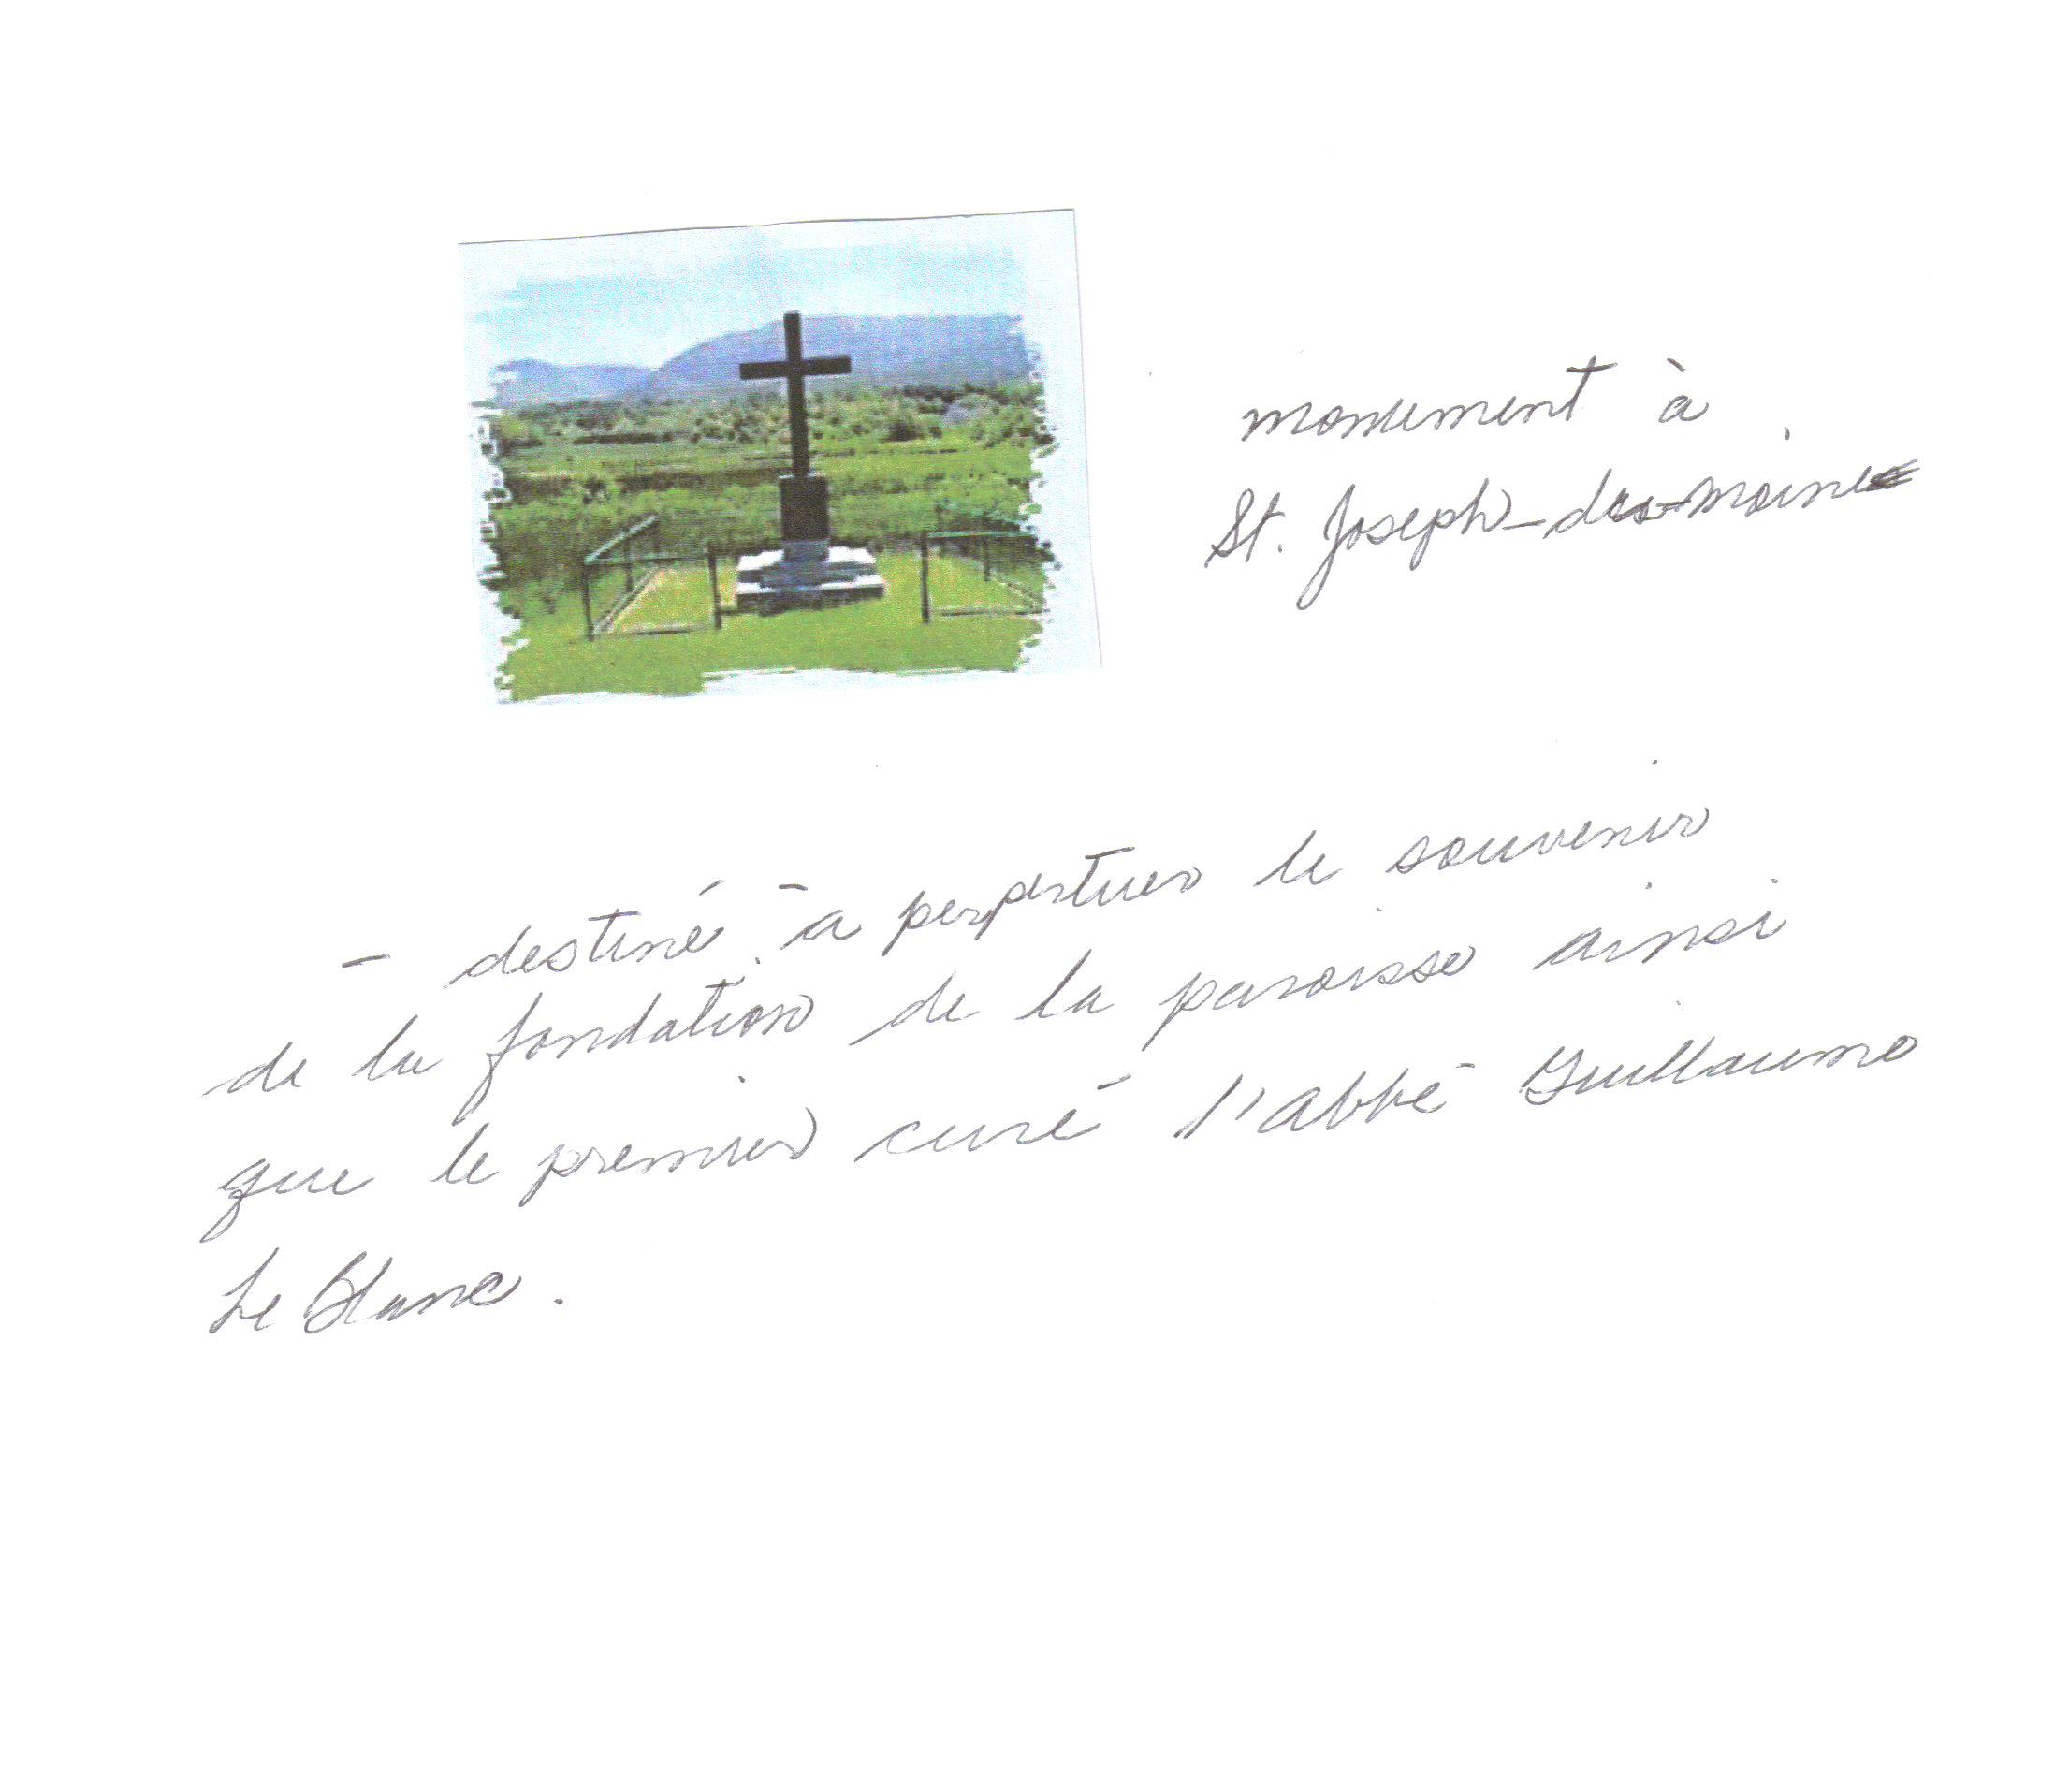 monument à
St. Joseph-du-Moine
- destiné à perpétuer le souvenir
de la fondation de la paroisse ainsi
que le premier curé l'abbé Guillaume
Le Blanc.